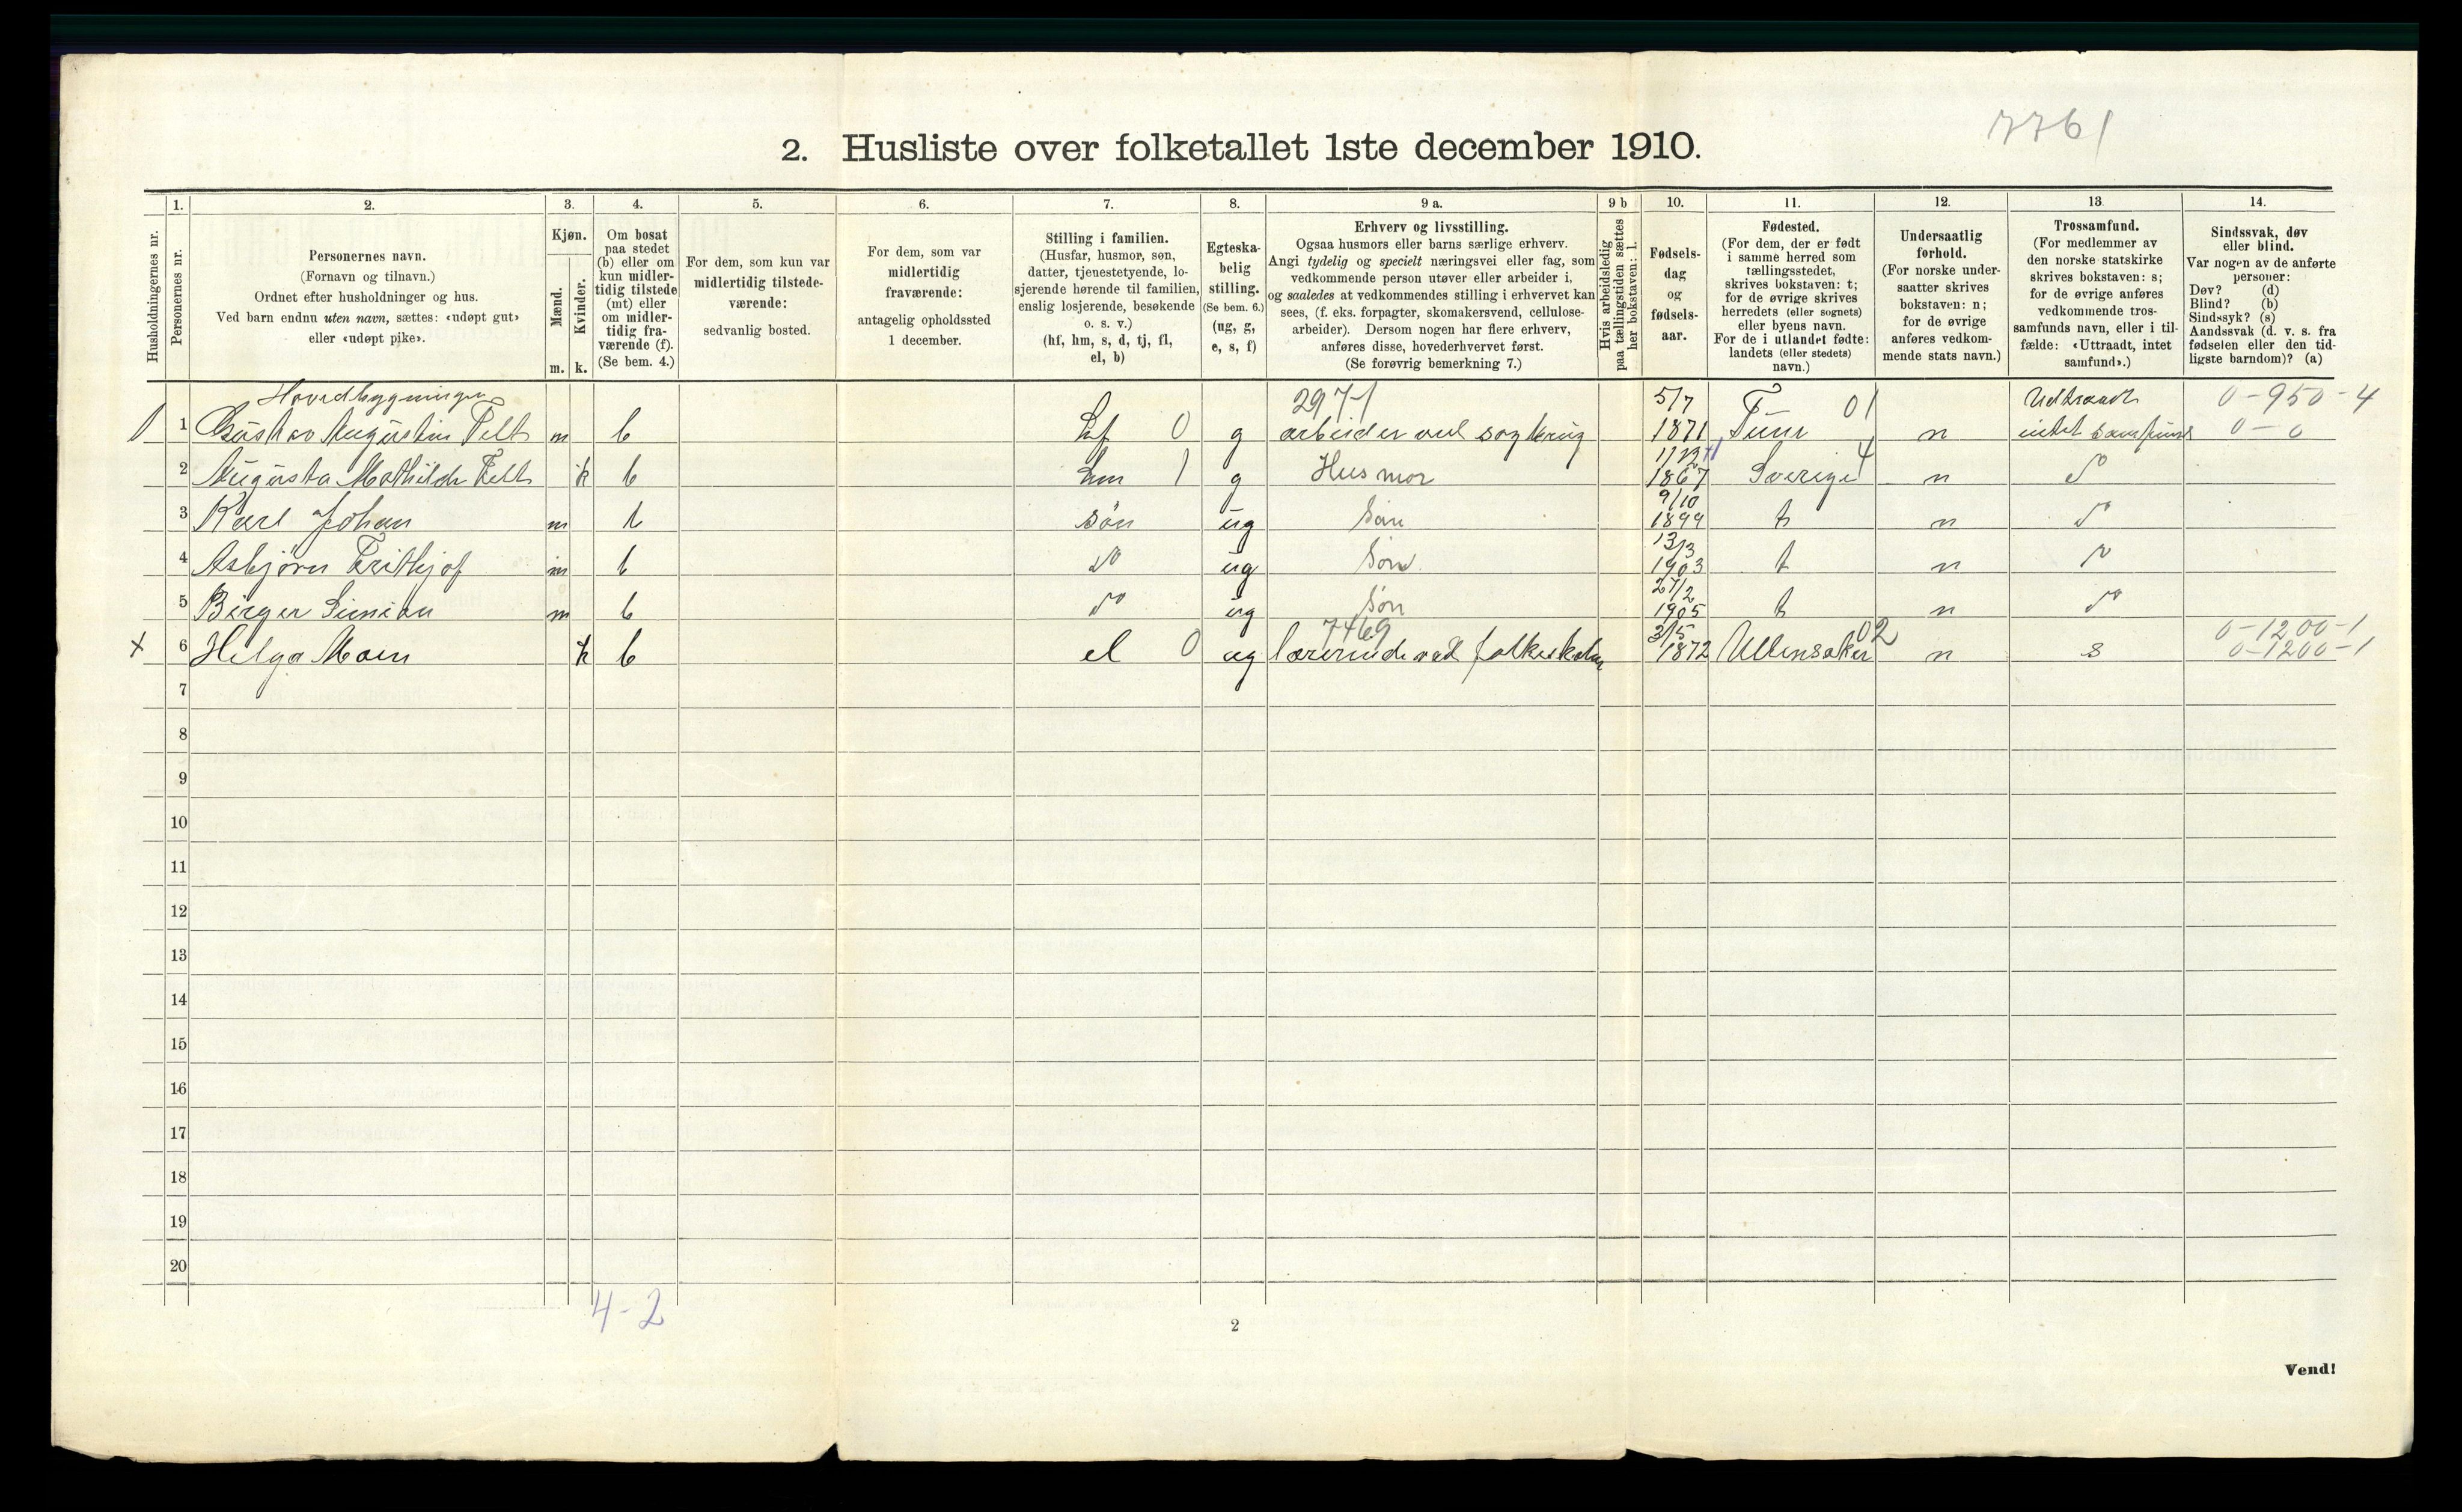 7761
2. Husliste over folketallet 1ste december 1910.
Husholdningernes nr.
1.
Personernes nr.
2.
Personernes navn.
(Fornavn og tilnavn.)
Ordnet efter husholdninger og hus.
Ved barn endnu uten navn, sættes: «udøpt gut»
eller «udøpt pike».
3.
Kjøn.
Mænd.
Kvinder.
m. k.
4.
Om bosat
paa stedet
(b) eller om
kun midler-
tidig tilstede
(mt) eller
om midler-
tidig fra-
værende (f).
(Se bem. 4.)
5.
For dem, som kun var
midlertidig tilstede-
værende:
sedvanlig bosted.
6.
For dem, som var
midlertidig
fraværende:
antagelig opholdssted
1 december.
7.
Stilling i familien.
(Husfar, husmor, søn,
datter, tjenestetyende, lo-
sjerende hørende til familien,
enslig losjerende, besøkende
o. s. v.)
(hf, hm, s, d, tj, fl,
el, b)
8.
Egteska-
belig
stilling.
(Se bem. 6.)
(ug, g,
e, s, f)
9 a.
Erhverv og livsstilling.
Ogsaa husmors eller barns særlige erhverv.
Angi tydelig og specielt næringsvei eller fag, som
vedkommende person utøver eller arbeider i,
og saaledes at vedkommendes stilling i erhvervet kan
sees, (f. eks. forpagter, skomakersvend, cellulose-
arbeider). Dersom nogen har flere erhverv,
anføres disse, hovederhvervet først.
(Se forøvrig bemerkning 7.)
9 b
Hvis arbeidsledig
paa tællingstiden sættes
her bokstaven: l.
10.
Fødsels-
dag
og
fødsels-
aar.
11.
Fødested.
(For dem, der er født
i samme herred som
tællingsstedet,
skrives bokstaven: t;
for de øvrige skrives
herredets (eller sognets)
eller byens navn.
For de i utlandet fødte:
landets (eller stedets)
navn.)
12.
Undersaatlig
forhold.
(For norske under-
saatter skrives
bokstaven: n;
for de øvrige
anføres vedkom-
mende stats navn.)
13.
Trossamfund.
(For medlemmer av
den norske statskirke
skrives bokstaven: s;
for de øvrige anføres
vedkommende tros-
samfunds navn, eller i til-
fælde: «Uttraadt, intet
samfund».)
14.
Sindssvak, døv
eller blind.
Var nogen av de anførte
personer:
Døv? (d)
Blind? (b)
Sindssyk? (s)
Aandssvak (d. v. s. fra
fødselen eller den tid-
ligste barndom)? (a)
Hovedbygningen 2971 5/7 01 Udtraadt 0-950-4
1 Gustav Augustin Felt m b hf 0 g arbeider ved sagbrug 1871 Tune n intet samfund 0-0
2 Augusta Mathilde Felt k b hm 1 g Husmor 1867 Sverige 4 n do
3 Karl Johan m b søn ug Søn 9/10 1899 t n do
4 Asbjørn Frithjof m b do ug Søn 13/3 1903 t n do
5 Birger Simian m b do ug Søn 27/2 1905 t n do
7469 02 0-1200-1
x 6 Helga Moen k b el 0 ug lærerinde ved folkeskolen 3/5 1872 Ullensaker n s 0-1200-1
7
8
9
10
11
12
13
14
15
16
17
18
19
20
4-2
2
Vend!